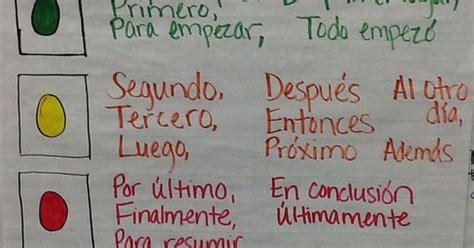 Primero,
Para empezar, Todo empezó
Segundo, Después Al otro día,
Tercero, Entonces
Luego, Próximo Además
Por último, En conclusión
Finalmente, Últimamente
Para resumir